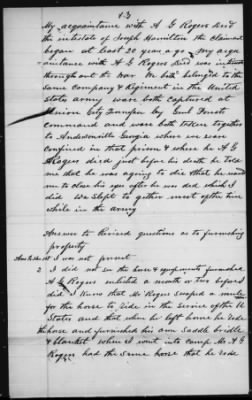 13
My acquaintance with A G Rogers decd
the intestate of Joseph Hamilton the claimant
began at least 20 years ago. My acqu
aintance with A G Rogers decd was intimate
throughout the war We both belonged to the
Same Company & Regiment in the United
States army were both captured at
Union City Tennessee by Genl Forrest
command and were both taken together
to Andersonville Georgia where we were
confined in that prison & where he A G
Rogers died just before his death he told
me that he was agoing to die that he wanted
me to close his eyes after he was ded, which I
did We slept to gether most of the time
while in the army
Answer to Revised questions as to furnishing
property
1st I was not present
2 I did not see the horse & equipments furnished
A G Rogers enlisted a month or two before I
did I know that Mr Rogers swaped a mule
for the horse to ride in the Service of the U
States and that when he left home he rode
the horse and furnished his own Saddle bridle
& blanket when I went into camp Mr A G
Rogers had the same horse that he rode